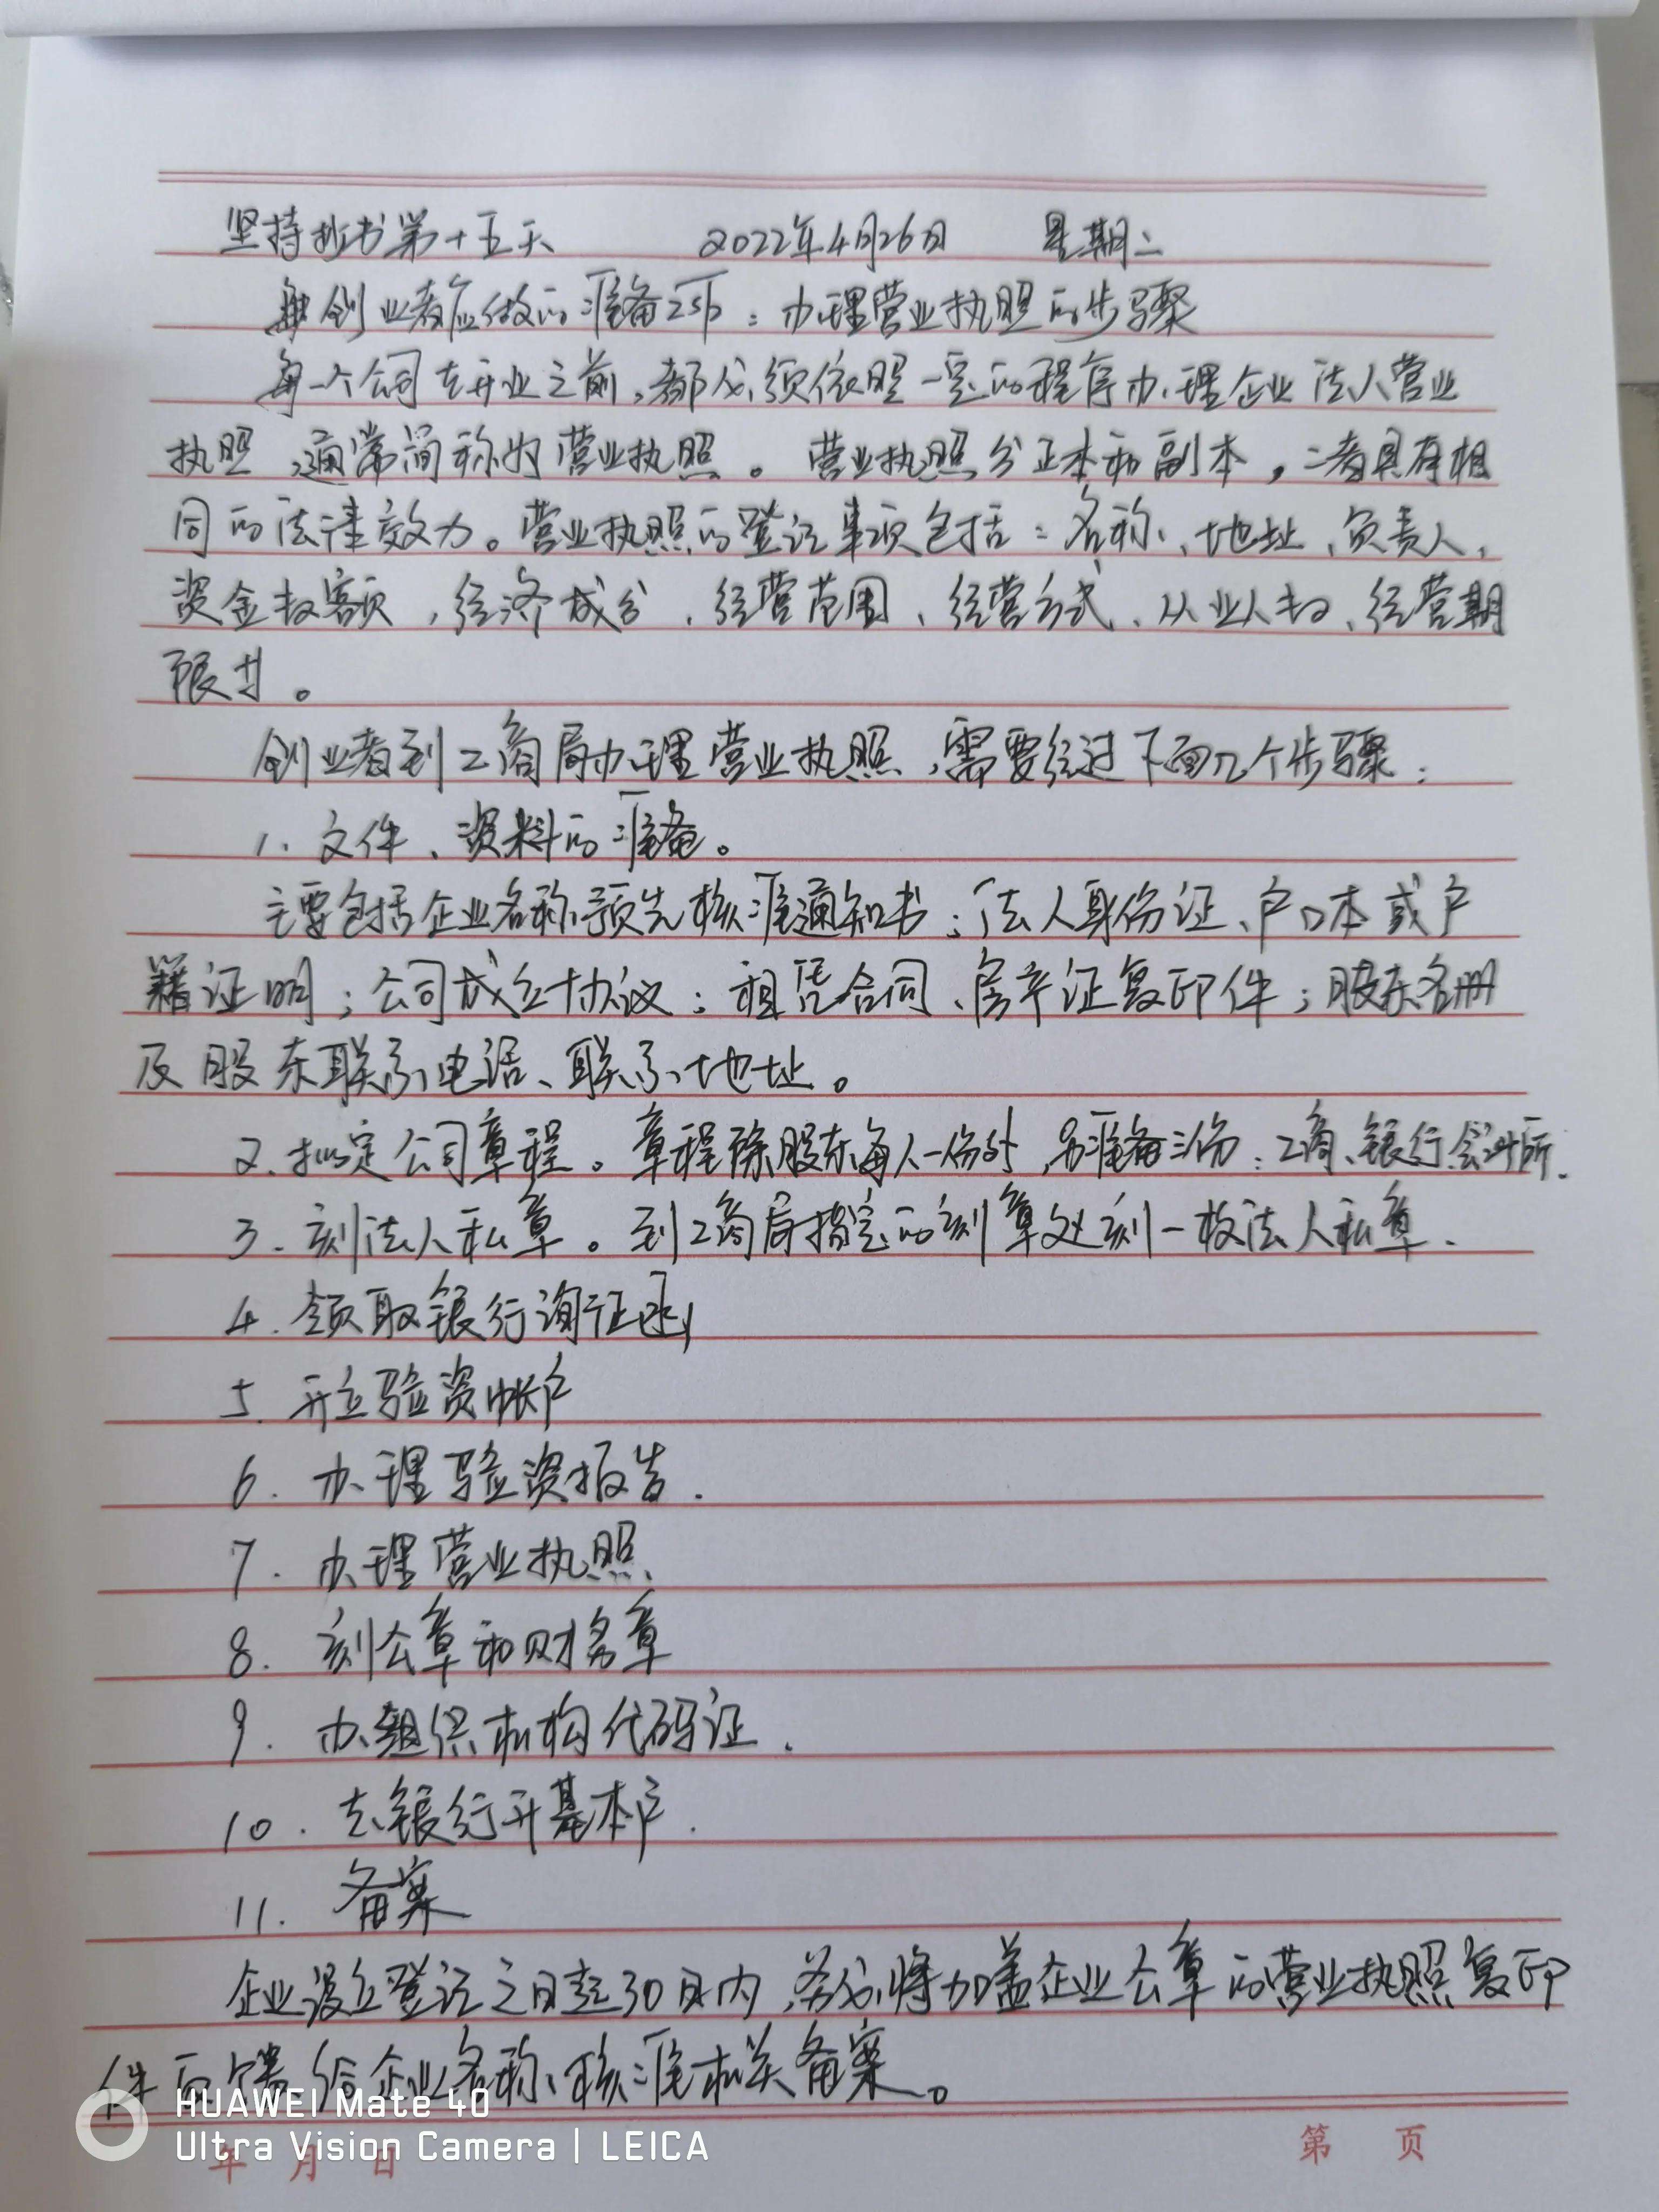 坚持抄书第十五天 2022年4月26日 星期二
创业者应做的准备工作:办理营业执照的步骤
每一个公司在开业之前,都必须依照一定的程序办理企业法人营业
执照,通常简称为营业执照。营业执照分正本和副本,二者具有相
同的法律效力。营业执照的登记事项包括:名称、地址、负责人、
资金数额、经济成分、经营范围、经营方式、从业人数、经营期
限等。
创业者到工商局办理营业执照,需要经过下面几个步骤:
1. 文件、资料的准备。
主要包括企业名称预先核准通知书;法人身份证、户口本或户
籍证明;公司成立协议;租赁合同、房产证复印件;股东名册
及股东联系电话、联系地址。
2. 拟定公司章程。章程除股东每人一份外,另准备三份:工商、银行、会计所.
3. 刻法人私章。到工商局指定的刻章处刻一枚法人私章.
4. 领取银行询证函
5. 开立验资帐户
6. 办理验资报告.
7. 办理营业执照
8. 刻公章和财务章
9. 办组织机构代码证.
10. 去银行开基本户.
11. 备案
企业设立登记之日起30日内,务必将加盖企业公章的营业执照复印
件反馈给企业名称核准机关备案。
年 月 日
第 页
HUAWEI Mate 40
Ultra Vision Camera | LEICA